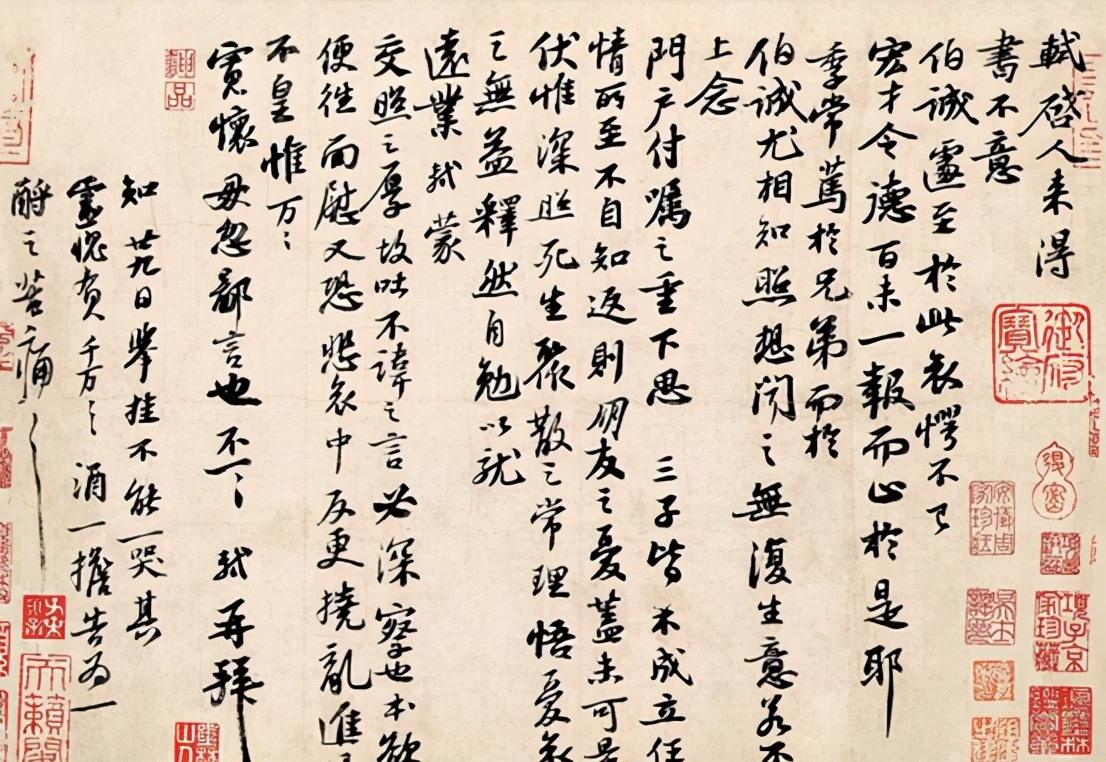 軾啓人来得
書不意
伯誠遽至於此哀愕不已
宏才令德百未一報而止於是耶
季常篤於兄弟而於
伯誠尤相知照想聞之無復生意若不
上念
門户付囑之重下思三子皆未成立任
情所至不自知返則朋友之憂蓋未可
伏惟深照死生聚散之常理悟憂哀
之無益釋然自勉以就
遠業軾蒙
交照之厚故吐不諱之言必深察也本欲
便往面慰又恐悲哀中反更撓亂進
不皇惟万〻
寬懷毋忽鄙言也不一〻軾再拜
知廿九日舉挂不能一哭其
靈愧負千万〻酒一擔告為一
酹之苦痛〻